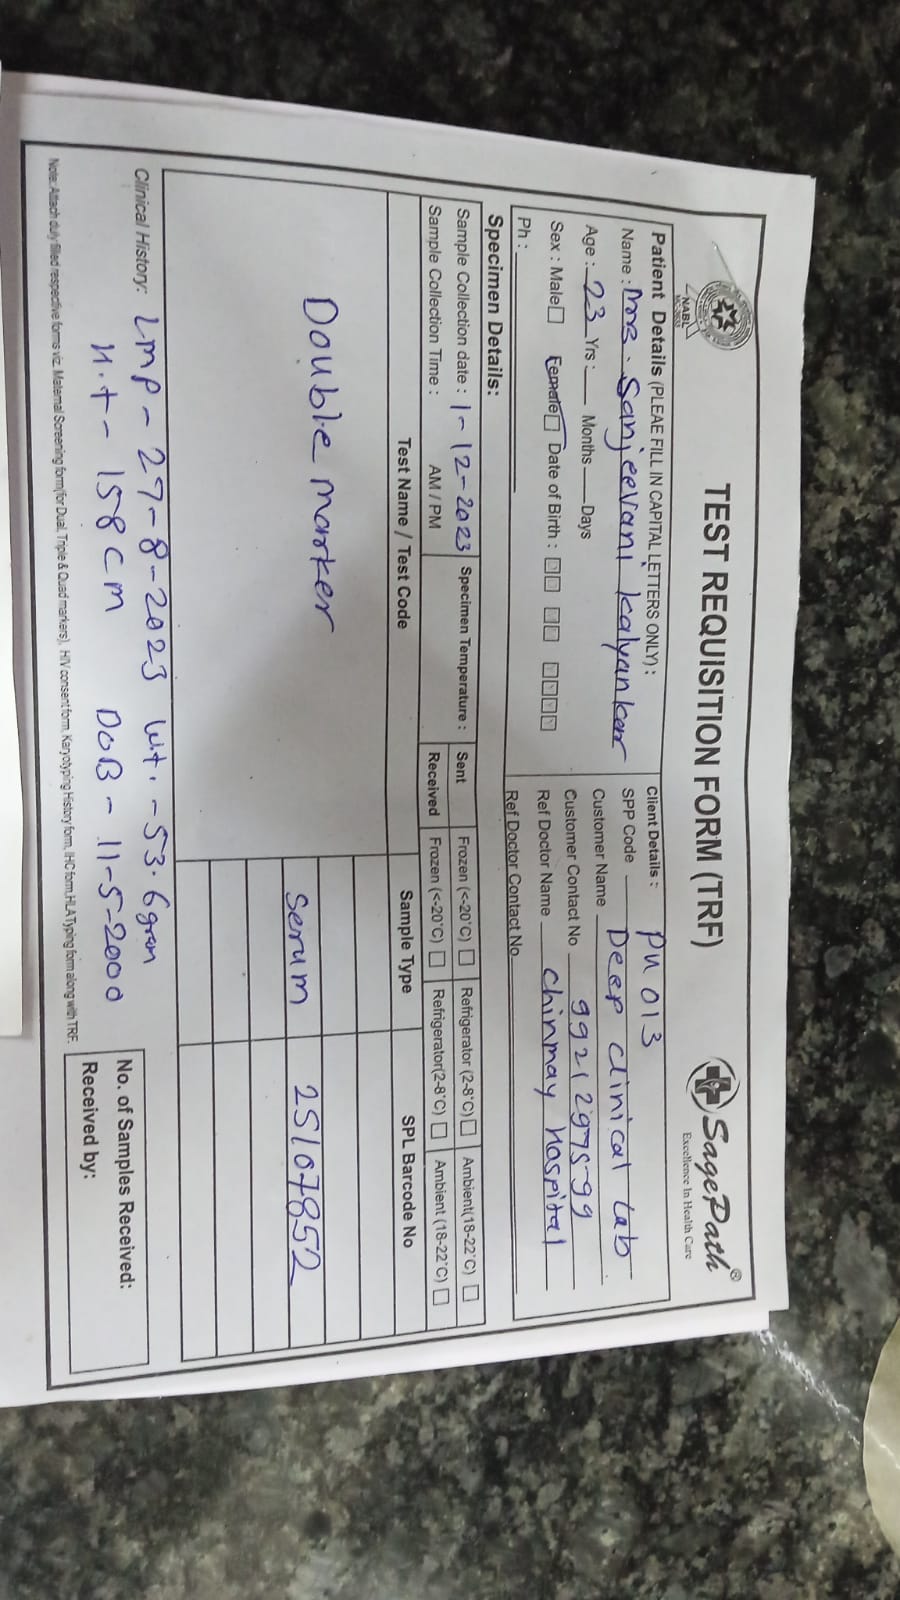 TEST REQUISITION FORM (TRF)
NABL
SagePath®
Excellence In Health Care
Patient Details (PLEAE FILL IN CAPITAL LETTERS ONLY) :
Name : Mrs. Sanjeevani kalyankar
Age : 23 Yrs : Months Days
Sex : Male Female Date of Birth : D D M M Y Y Y Y
Ph :
Client Details : PU 013
SPP Code
Customer Name Deep clinical Lab
Customer Contact No 9921 2975-99
Ref Doctor Name chinmay hospital
Ref Doctor Contact No
Specimen Details:
Sample Collection date : 1-12-2023 Specimen Temperature : Sent Frozen (<-20°C) Refrigerator (2-8°C) Ambient(18-22°C)
Sample Collection Time : AM / PM Received Frozen (<-20°C) Refrigerator(2-8°C) Ambient (18-22°C)
Test Name / Test Code Sample Type SPL Barcode No
Double marker Serum 25107852
Clinical History: LMP - 27-8-2023 Wt. - 53.6gram
H.t - 158 cm DOB - 11-5-2000
No. of Samples Received:
Received by:
Note: Attach duly filled respective forms viz. Maternal Screening form(for Dual, Triple & Quad markers), HIV consent form, Karyotyping History form, IHC form,HLA Typing form along with TRF.